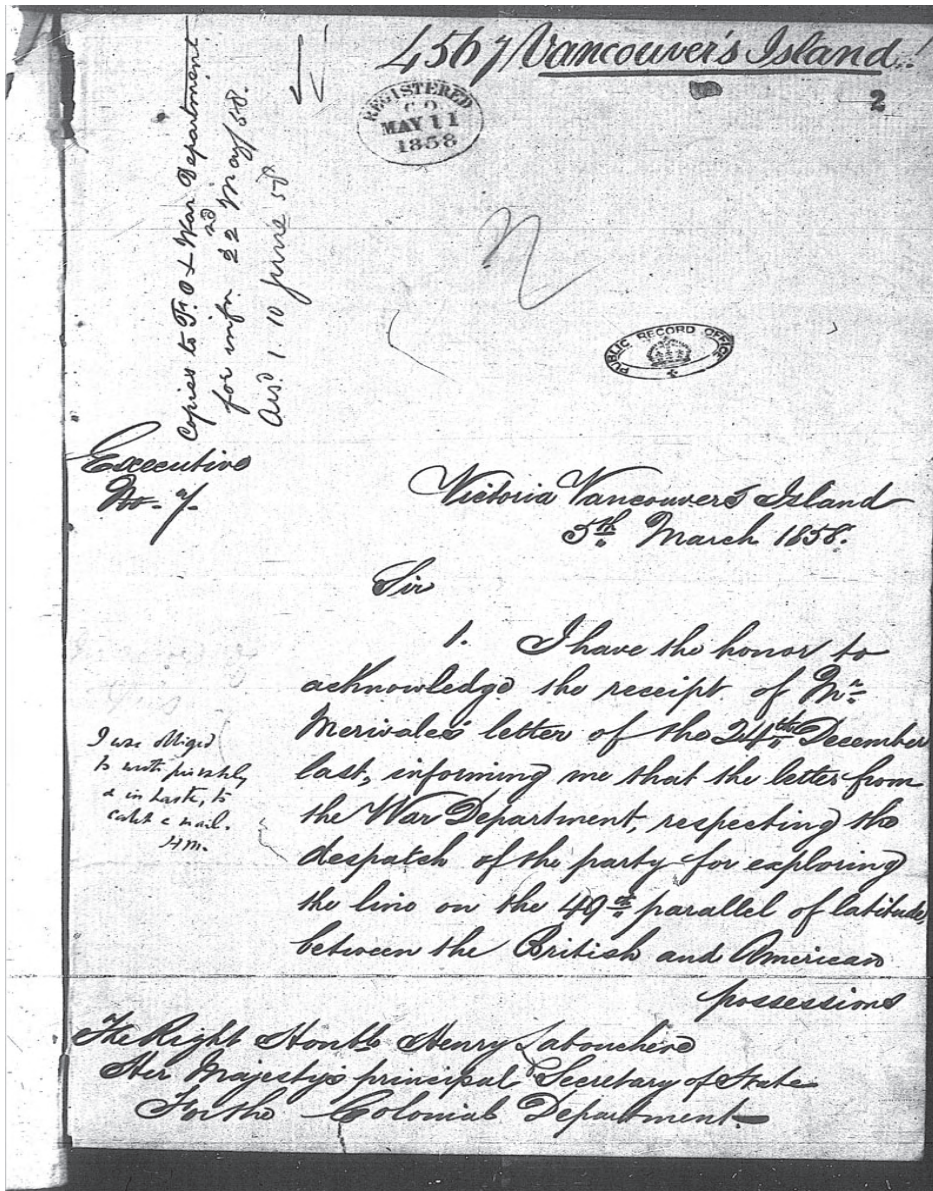 4567 Vancouver's Island
2
REGISTERED
C.O.
MAY 11
1858
Copies to F.O & War Department
for infn. 22nd May/58.
Ansd. 10 June 58
PUBLIC RECORD OFFICE
Executive
No. 7.
Victoria Vancouver's Island
5th March 1858.
Sir
1. I have the honor to
acknowledge the receipt of Mr
Merivale's letter of the 24th December
last, informing me that the letter from
the War Department, respecting the
despatch of the party for exploring
the line on the 49th parallel of latitude,
between the British and American
possessions
I was obliged
to write privately
& in haste, to
catch a mail.
HM.
The Right Honble Henry Labouchere
Her Majesty's principal Secretary of State
For the Colonial Department.